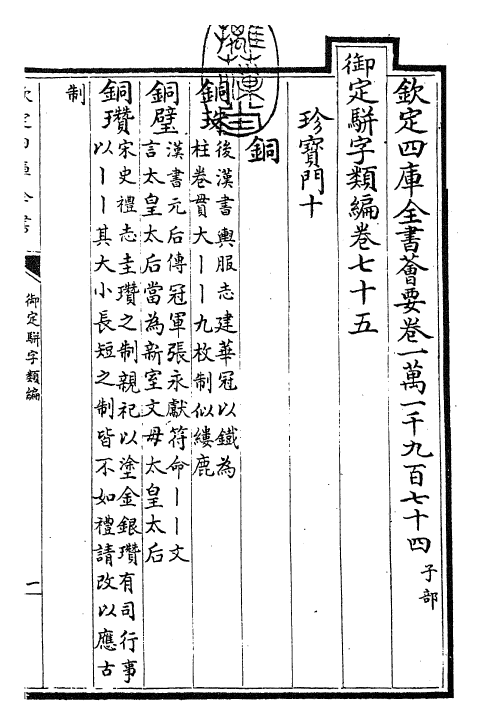 欽定四庫全書薈要卷一萬一千九百七十四 子部
御定駢字類編卷七十五
珍寶門十
銅
銅珠 後漢書輿服志建華冠以鐵為
柱卷貫大丨丨九枚制似縷鹿
銅璧 漢書元后傳冠軍張永獻符命丨丨文
言太皇太后當為新室文母太皇太后
銅瓚 宋史禮志圭瓚之制親祀以塗金銀瓚有司行事
以丨丨其大小長短之制皆不如禮請改以應古
制
御定駢字類編
一